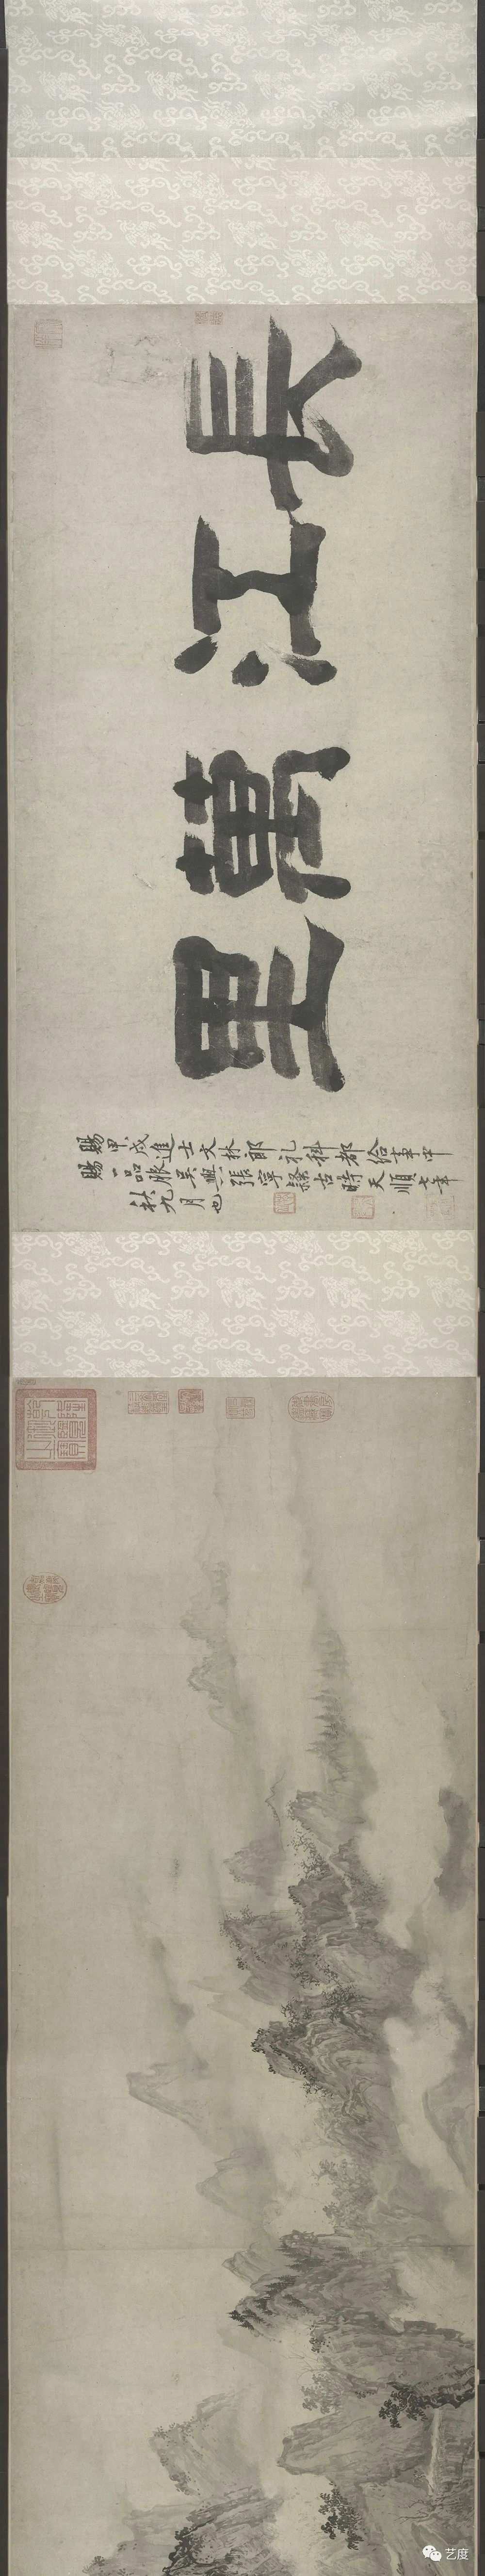 長江萬里
賜甲戌進士文林郎礼科都給事中
賜一品服吳興張寧隸古時天順七年
秋九月也
艺度